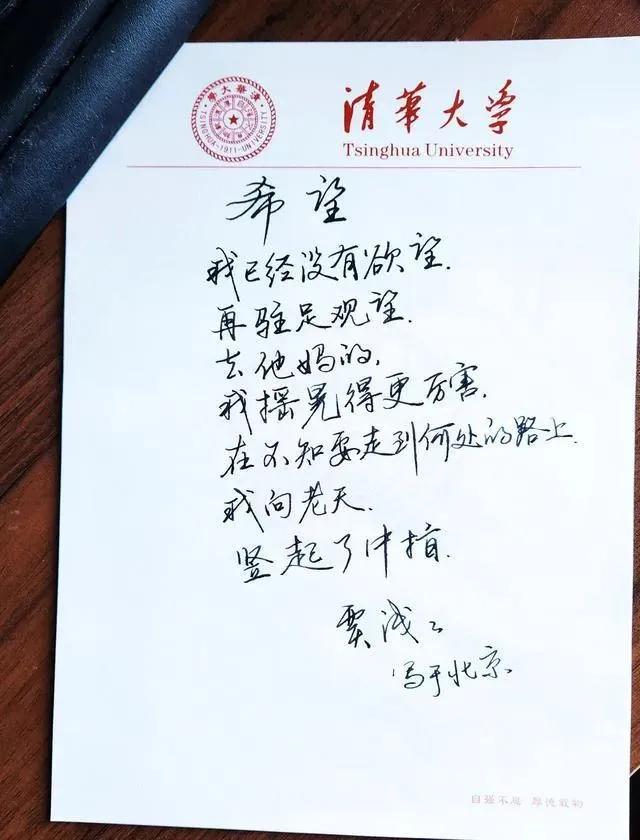 清華大學
TSINGHUA-1911-UNIVERSITY
清華大学
Tsinghua University
希望
我已经没有欲望.
再驻足观望.
去他妈的,
我摇晃得更厉害.
在不知要走到何处的路上.
我向老天.
竖起了中指.
贾浅々
写于北京
自强不息 厚德载物